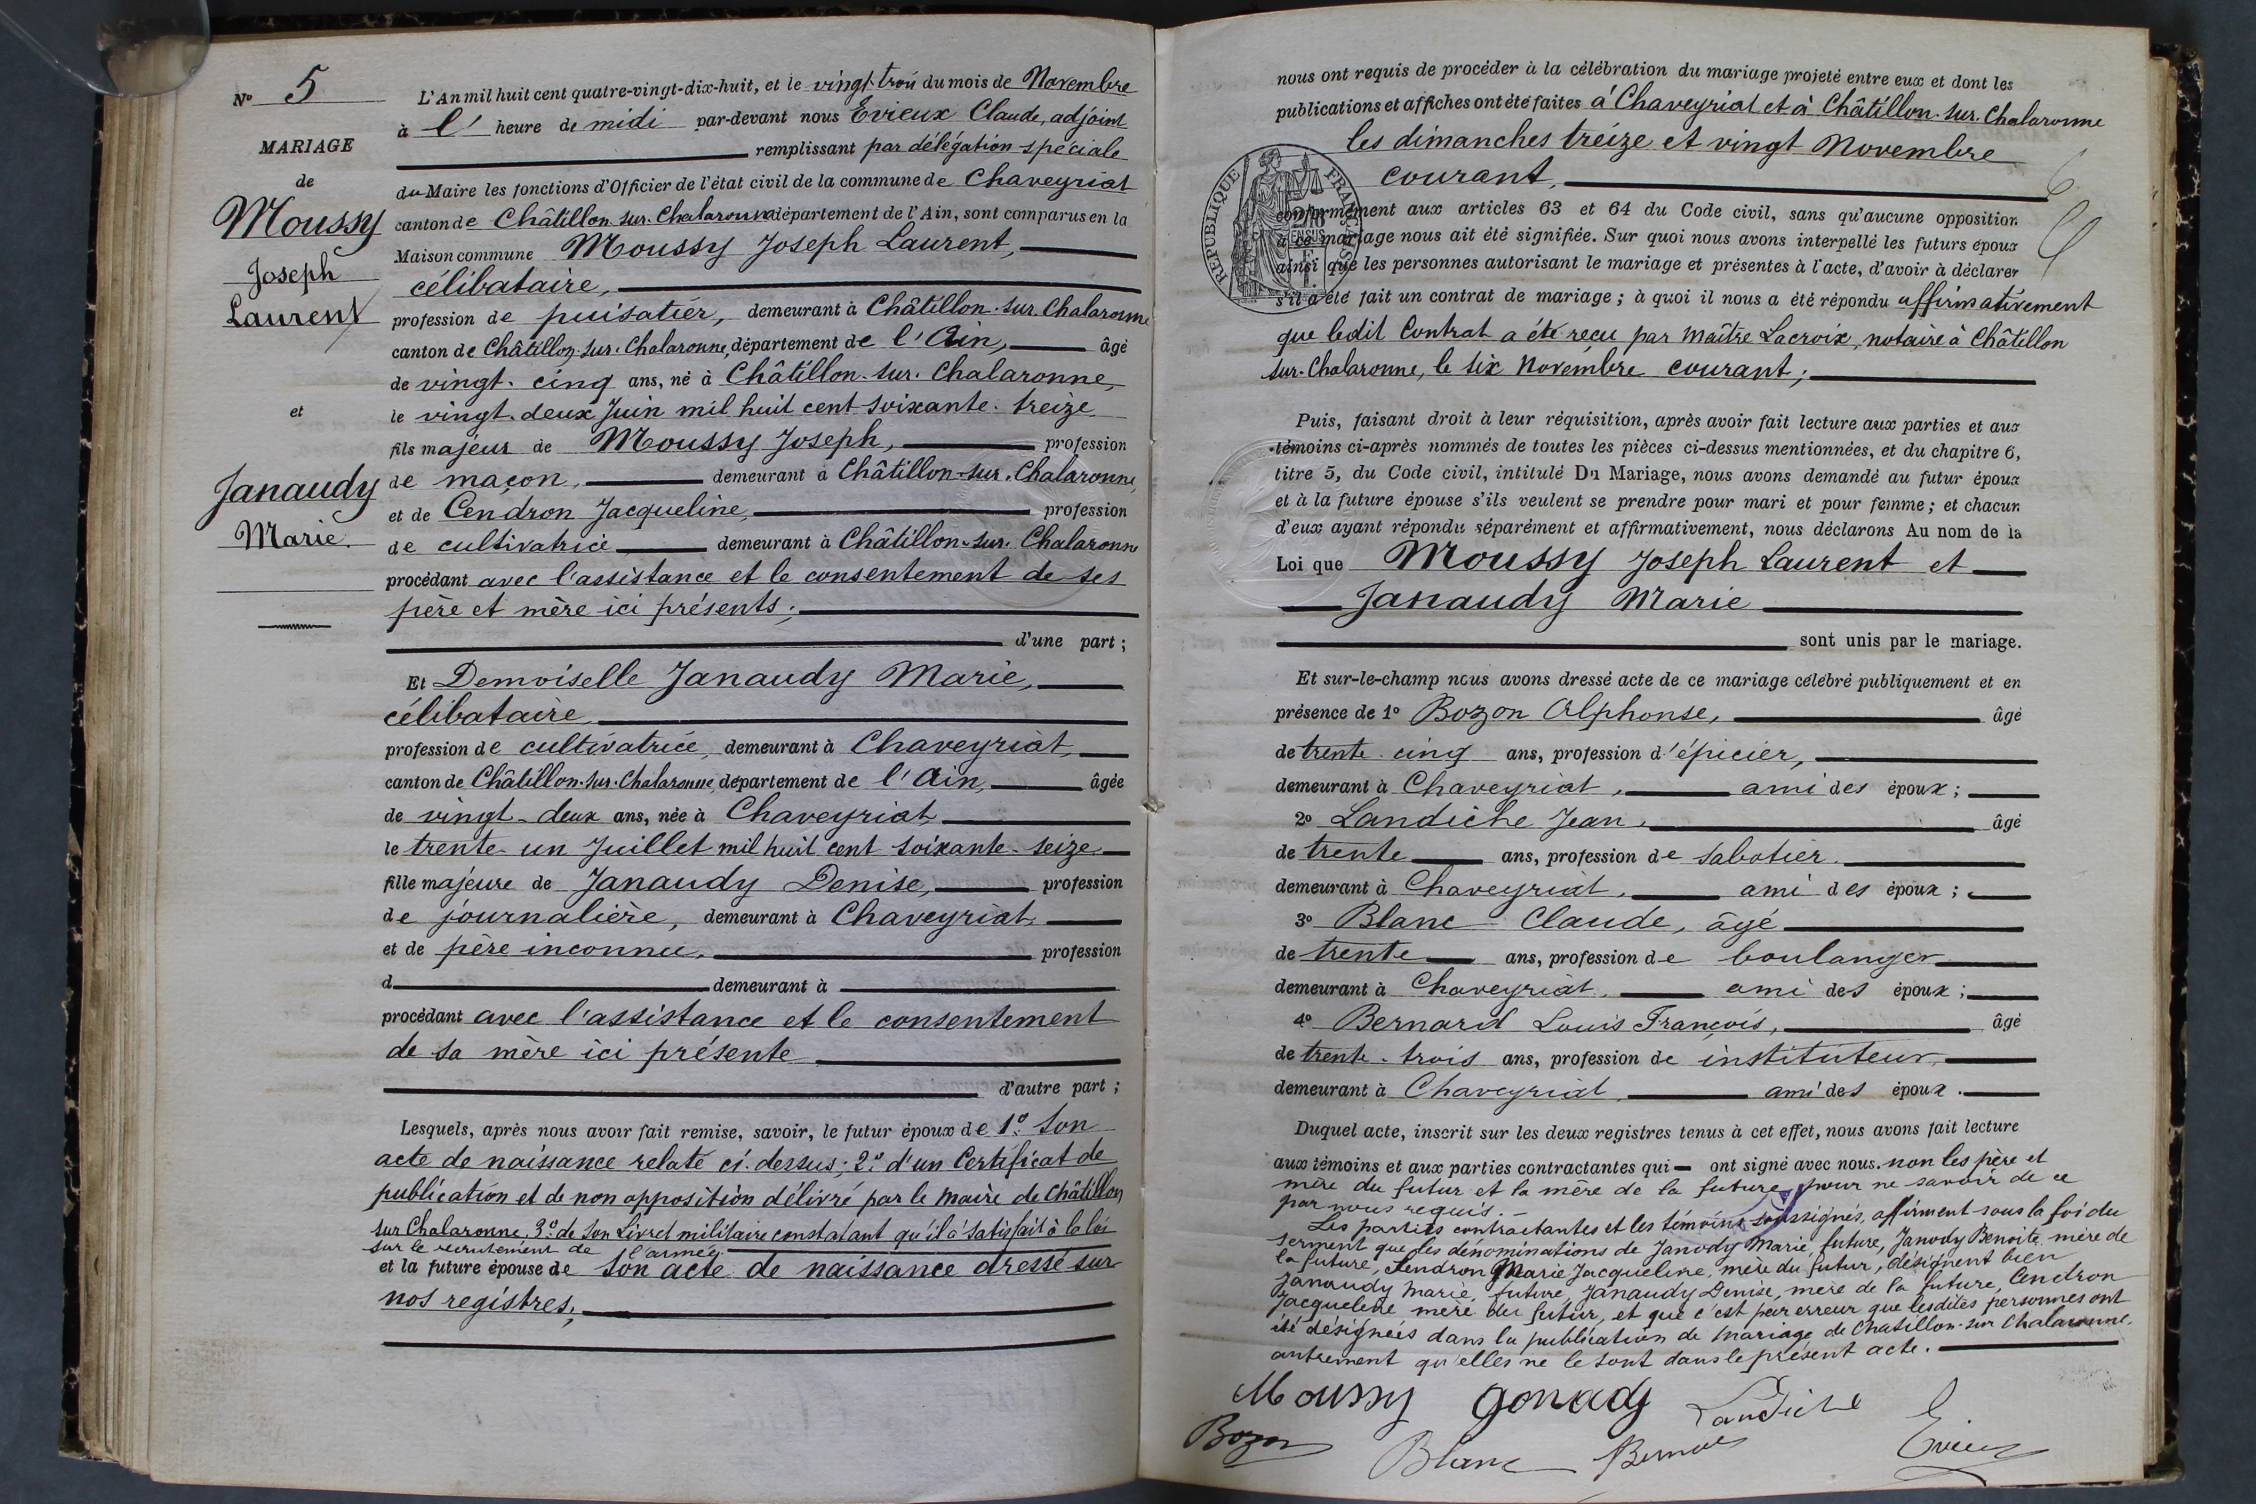 Nº 5
MARIAGE
de
Moussy
Joseph
Laurent
et
Janaudy
Marie
L'An mil huit cent quatre-vingt-dix-huit, et le vingt-trois du mois de Novembre
à l' heure de midi par-devant nous Evieux Claude, adjoint
remplissant par délégation spéciale
du Maire les fonctions d'Officier de l'état civil de la commune de Chaveyriat
canton de Châtillon-sur-Chalaronne département de l'Ain, sont comparus en la
Maison commune Moussy Joseph Laurent,
célibataire,
profession de puisatier, demeurant à Châtillon-sur-Chalaronne
canton de Châtillon-sur-Chalaronne, département de l'Ain, âgé
de vingt-cinq ans, né à Châtillon-sur-Chalaronne,
le vingt-deux Juin mil huit cent soixante-treize
fils majeur de Moussy Joseph, profession
de maçon, demeurant à Châtillon-sur-Chalaronne,
et de Cendron Jacqueline, profession
de cultivatrice demeurant à Châtillon-sur-Chalaronne
procédant avec l'assistance et le consentement de ses
père et mère ici présents;
d'une part;
Et Demoiselle Janaudy Marie,
célibataire
profession de cultivatrice, demeurant à Chaveyriat,
canton de Châtillon-sur-Chalaronne, département de l'Ain, âgée
de vingt-deux ans, née à Chaveyriat
le trente-un Juillet mil huit cent soixante-seize
fille majeure de Janaudy Denise, profession
de journalière, demeurant à Chaveyriat,
et de père inconnu, profession
d demeurant à
procédant avec l'assistance et le consentement
de sa mère ici présente
d'autre part;
Lesquels, après nous avoir fait remise, savoir, le futur époux de 1º son
acte de naissance relaté ci-dessus; 2º d'un Certificat de
publication et de non opposition délivré par le maire de Châtillon
sur Chalaronne, 3º de son Livret militaire constatant qu'il a satisfait à la loi
sur le recrutement de l'armée.
et la future épouse de son acte de naissance dressé sur
nos registres,
nous ont requis de procéder à la célébration du mariage projeté entre eux et dont les
publications et affiches ont été faites à Chaveyriat et à Châtillon-sur-Chalaronne
les dimanches treize et vingt Novembre
courant,
RÉPUBLIQUE FRANÇAISE
conformément aux articles 63 et 64 du Code civil, sans qu'aucune opposition
à ce mariage nous ait été signifiée. Sur quoi nous avons interpellé les futurs époux
ainsi que les personnes autorisant le mariage et présentes à l'acte, d'avoir à déclarer
s'il a été fait un contrat de mariage; à quoi il nous a été répondu affirmativement
que ledit Contrat a été reçu par Maître Lacroix, notaire à Châtillon
sur-Chalaronne, le six Novembre courant;
Puis, faisant droit à leur réquisition, après avoir fait lecture aux parties et aux
témoins ci-après nommés de toutes les pièces ci-dessus mentionnées, et du chapitre 6,
titre 5, du Code civil, intitulé Du Mariage, nous avons demandé au futur époux
et à la future épouse s'ils veulent se prendre pour mari et pour femme; et chacun
d'eux ayant répondu séparément et affirmativement, nous déclarons Au nom de la
Loi que Moussy Joseph Laurent et
Janaudy Marie
sont unis par le mariage.
Et sur-le-champ nous avons dressé acte de ce mariage célébré publiquement et en
présence de 1º Bozon Alphonse, âgé
de trente-cinq ans, profession d'épicier,
demeurant à Chaveyriat, ami des époux;
2º Landiche Jean, âgé
de trente ans, profession de sabotier
demeurant à Chaveyriat, ami des époux;
3º Blanc Claude, âgé
de trente ans, profession de boulanger
demeurant à Chaveyriat, ami des époux;
4º Bernard Louis François, âgé
de trente-trois ans, profession de instituteur,
demeurant à Chaveyriat, ami des époux.
Duquel acte, inscrit sur les deux registres tenus à cet effet, nous avons fait lecture
aux témoins et aux parties contractantes qui ont signé avec nous. non les père et
mère du futur et la mère de la future, pour ne savoir de ce
par nous requis.
Les parties contractantes et les témoins soussignés, affirment sous la foi du
serment que les dénominations de Janody Marie, future, Janody Benoite, mère de
la future, Cendron Marie Jacqueline, mère du futur, désignent bien
Janaudy Marie, future, Janaudy Denise, mère de la future, Cendron
Jacqueline mère du futur, et que c'est par erreur que lesdites personnes ont
été désignées dans la publication de mariage de Châtillon-sur-Chalaronne,
autrement qu'elles ne le sont dans le présent acte.
Moussy gonady Landiche
Bozon Blanc Bernard Evieux